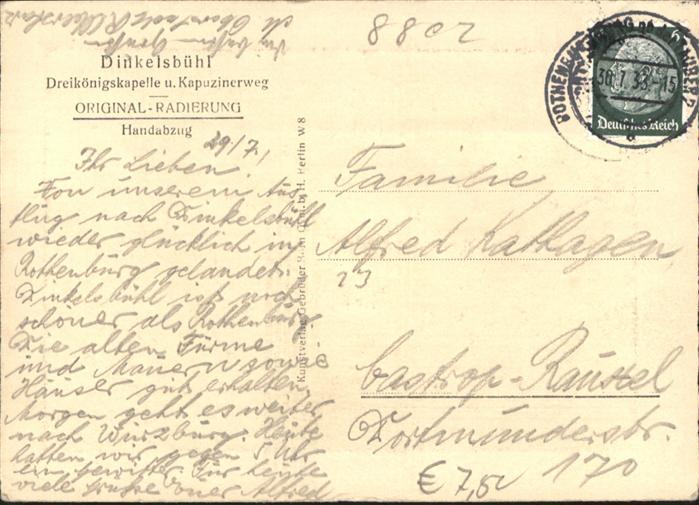 8802
Dinkelsbühl
Dreikönigskapelle u. Kapuzinerweg
ORIGINAL-RADIERUNG
Handabzug
29./7.
Ihr Lieben!
Von unserem Aus-
flug nach Dinkelsbühl
wieder glücklich in
Rothenburg gelandet.
Dinkelsbühl ist noch
schöner als Rothenburg
Die alten Türme
und Mauern sowie
Häuser gut erhalten.
Morgen geht es weiter
nach Würzburg. Heute
hatten wir gegen 5 Uhr
ein Gewitter. Für heute
viele Grüsse Euer Alfred
Kunstverlag Gebrüder G.m.b.H. Berlin W 8
ROTHENBURG
30.7.38.-15
6
Deutsches Reich
a
Familie
Alfred Kathagen
23
Castrop-Rauxel
Dortmunderstr.
170
€ 7,50